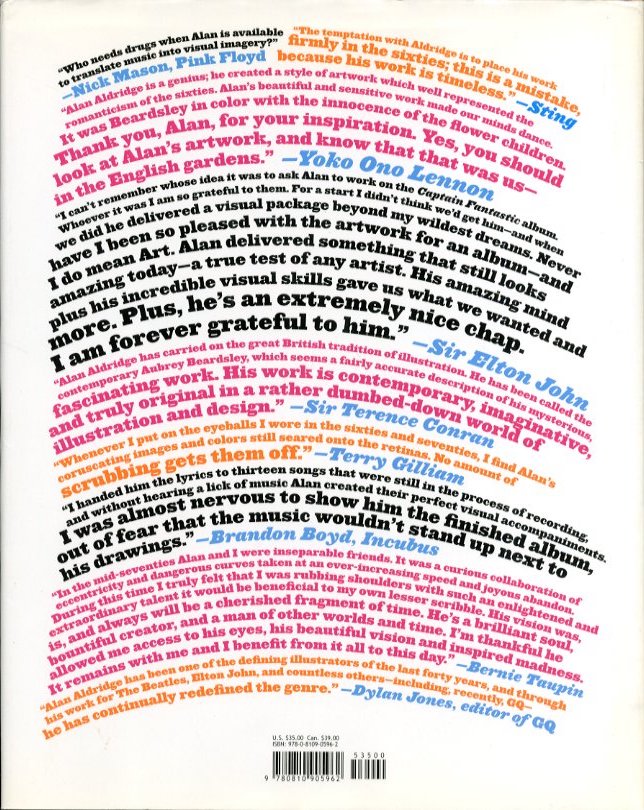 “Who needs drugs when Alan is available
to translate music into visual imagery?”
—Nick Mason, Pink Floyd
“The temptation with Aldridge is to place his work
firmly in the sixties; this is a mistake,
because his work is timeless.” —Sting
“Alan Aldridge is a genius; he created a style of artwork which well represented the
romanticism of the sixties. Alan’s beautiful and sensitive work made our minds dance.
It was Beardsley in color with the innocence of the flower children.
Thank you, Alan, for your inspiration. Yes, you should
look at Alan’s artwork, and know that that was us—
in the English gardens.” —Yoko Ono Lennon
“I can’t remember whose idea it was to ask Alan to work on the Captain Fantastic album.
Whoever it was I am so grateful to them. For a start I didn’t think we’d get him—and when
we did he delivered a visual package beyond my wildest dreams. Never
have I been so pleased with the artwork for an album—and
I do mean Art. Alan delivered something that still looks
amazing today—a true test of any artist. His amazing mind
plus his incredible visual skills gave us what we wanted and
more. Plus, he’s an extremely nice chap.
I am forever grateful to him.” —Sir Elton John
“Alan Aldridge has carried on the great British tradition of illustration. He has been called the
contemporary Aubrey Beardsley, which seems a fairly accurate description of his mysterious,
fascinating work. His work is contemporary, imaginative,
and truly original in a rather dumbed-down world of
illustration and design.” —Sir Terence Conran
“Whenever I put on the eyeballs I wore in the sixties and seventies, I find Alan’s
coruscating images and colors still seared onto the retinas. No amount of
scrubbing gets them off.” —Terry Gilliam
“I handed him the lyrics to thirteen songs that were still in the process of recording,
and without hearing a lick of music Alan created their perfect visual accompaniments.
I was almost nervous to show him the finished album,
out of fear that the music wouldn’t stand up next to
his drawings.” —Brandon Boyd, Incubus
“In the mid-seventies Alan and I were inseparable friends. It was a curious collaboration of
eccentricity and dangerous curves taken at an ever-increasing speed and joyous abandon.
During this time I truly felt that I was rubbing shoulders with such an enlightened and
extraordinary talent it would be beneficial to my own lesser scribble. His vision was,
is, and always will be a cherished fragment of time. He’s a brilliant soul,
bountiful creator, and a man of other worlds and time. I’m thankful he
allowed me access to his eyes, his beautiful vision and inspired madness.
It remains with me and I benefit from it all to this day.” —Bernie Taupin
“Alan Aldridge has been one of the defining illustrators of the last forty years, and through
his work for The Beatles, Elton John, and countless others—including, recently, GQ—
he has continually redefined the genre.” —Dylan Jones, editor of GQ
U.S. $35.00 Can. $39.00
ISBN: 978-0-8109-0596-2
53500
9 780810 905962